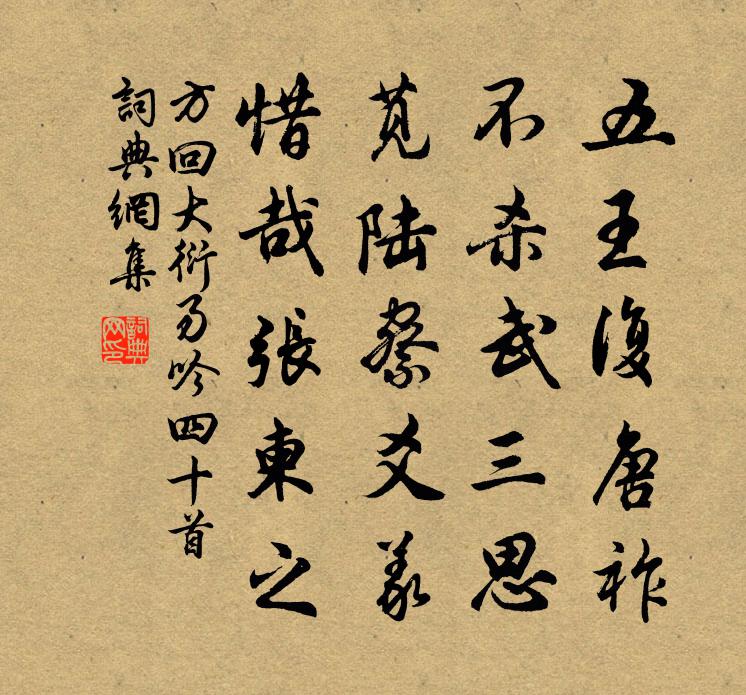 五王復唐祚
不杀武三思
莧陸察爻義
惜哉張東之
方回大衍易吟四十首
詞典網集
詞典
网印